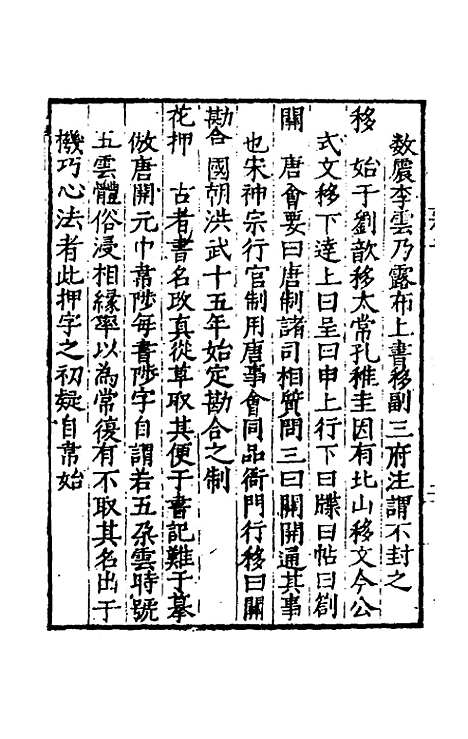 數震李雲乃露布上書移副三府注謂不封之
移　始于劉歆移太常孔稚圭因有北山移文今公
式文移下達上曰呈曰申上行下曰牒曰帖曰劄
關　唐會要曰唐制諸司相質問三曰關關通其事
也宋神宗行官制用唐事會同品衙門行移曰關
勘合　國朝洪武十五年始定勘合之制
花押　古者書名改真從草取其便于書記難于摹
倣唐開元中韋陟每書陟字自謂若五朶雲時號
五雲體俗浸相緣率以為常復有不取其名出于
機巧心法者此押字之初疑自韋始